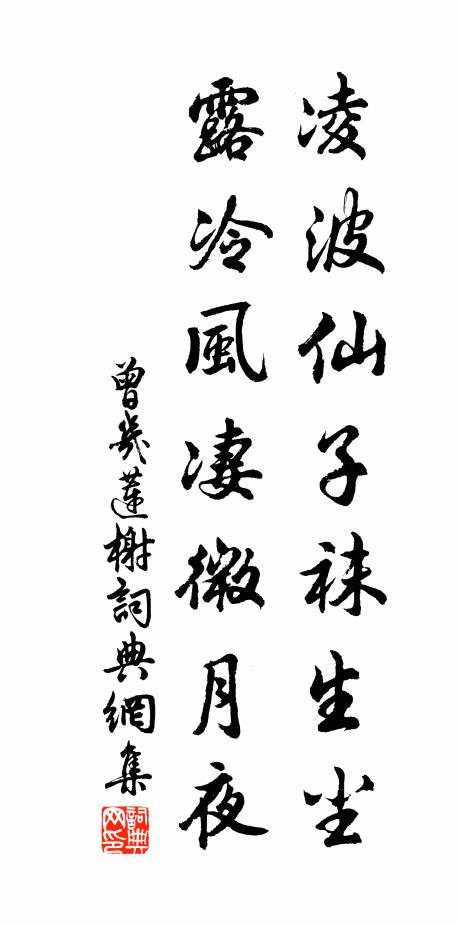 凌波仙子袜生尘
露冷風凄微月夜
曾幾蓮榭詞典網集
詞典网印